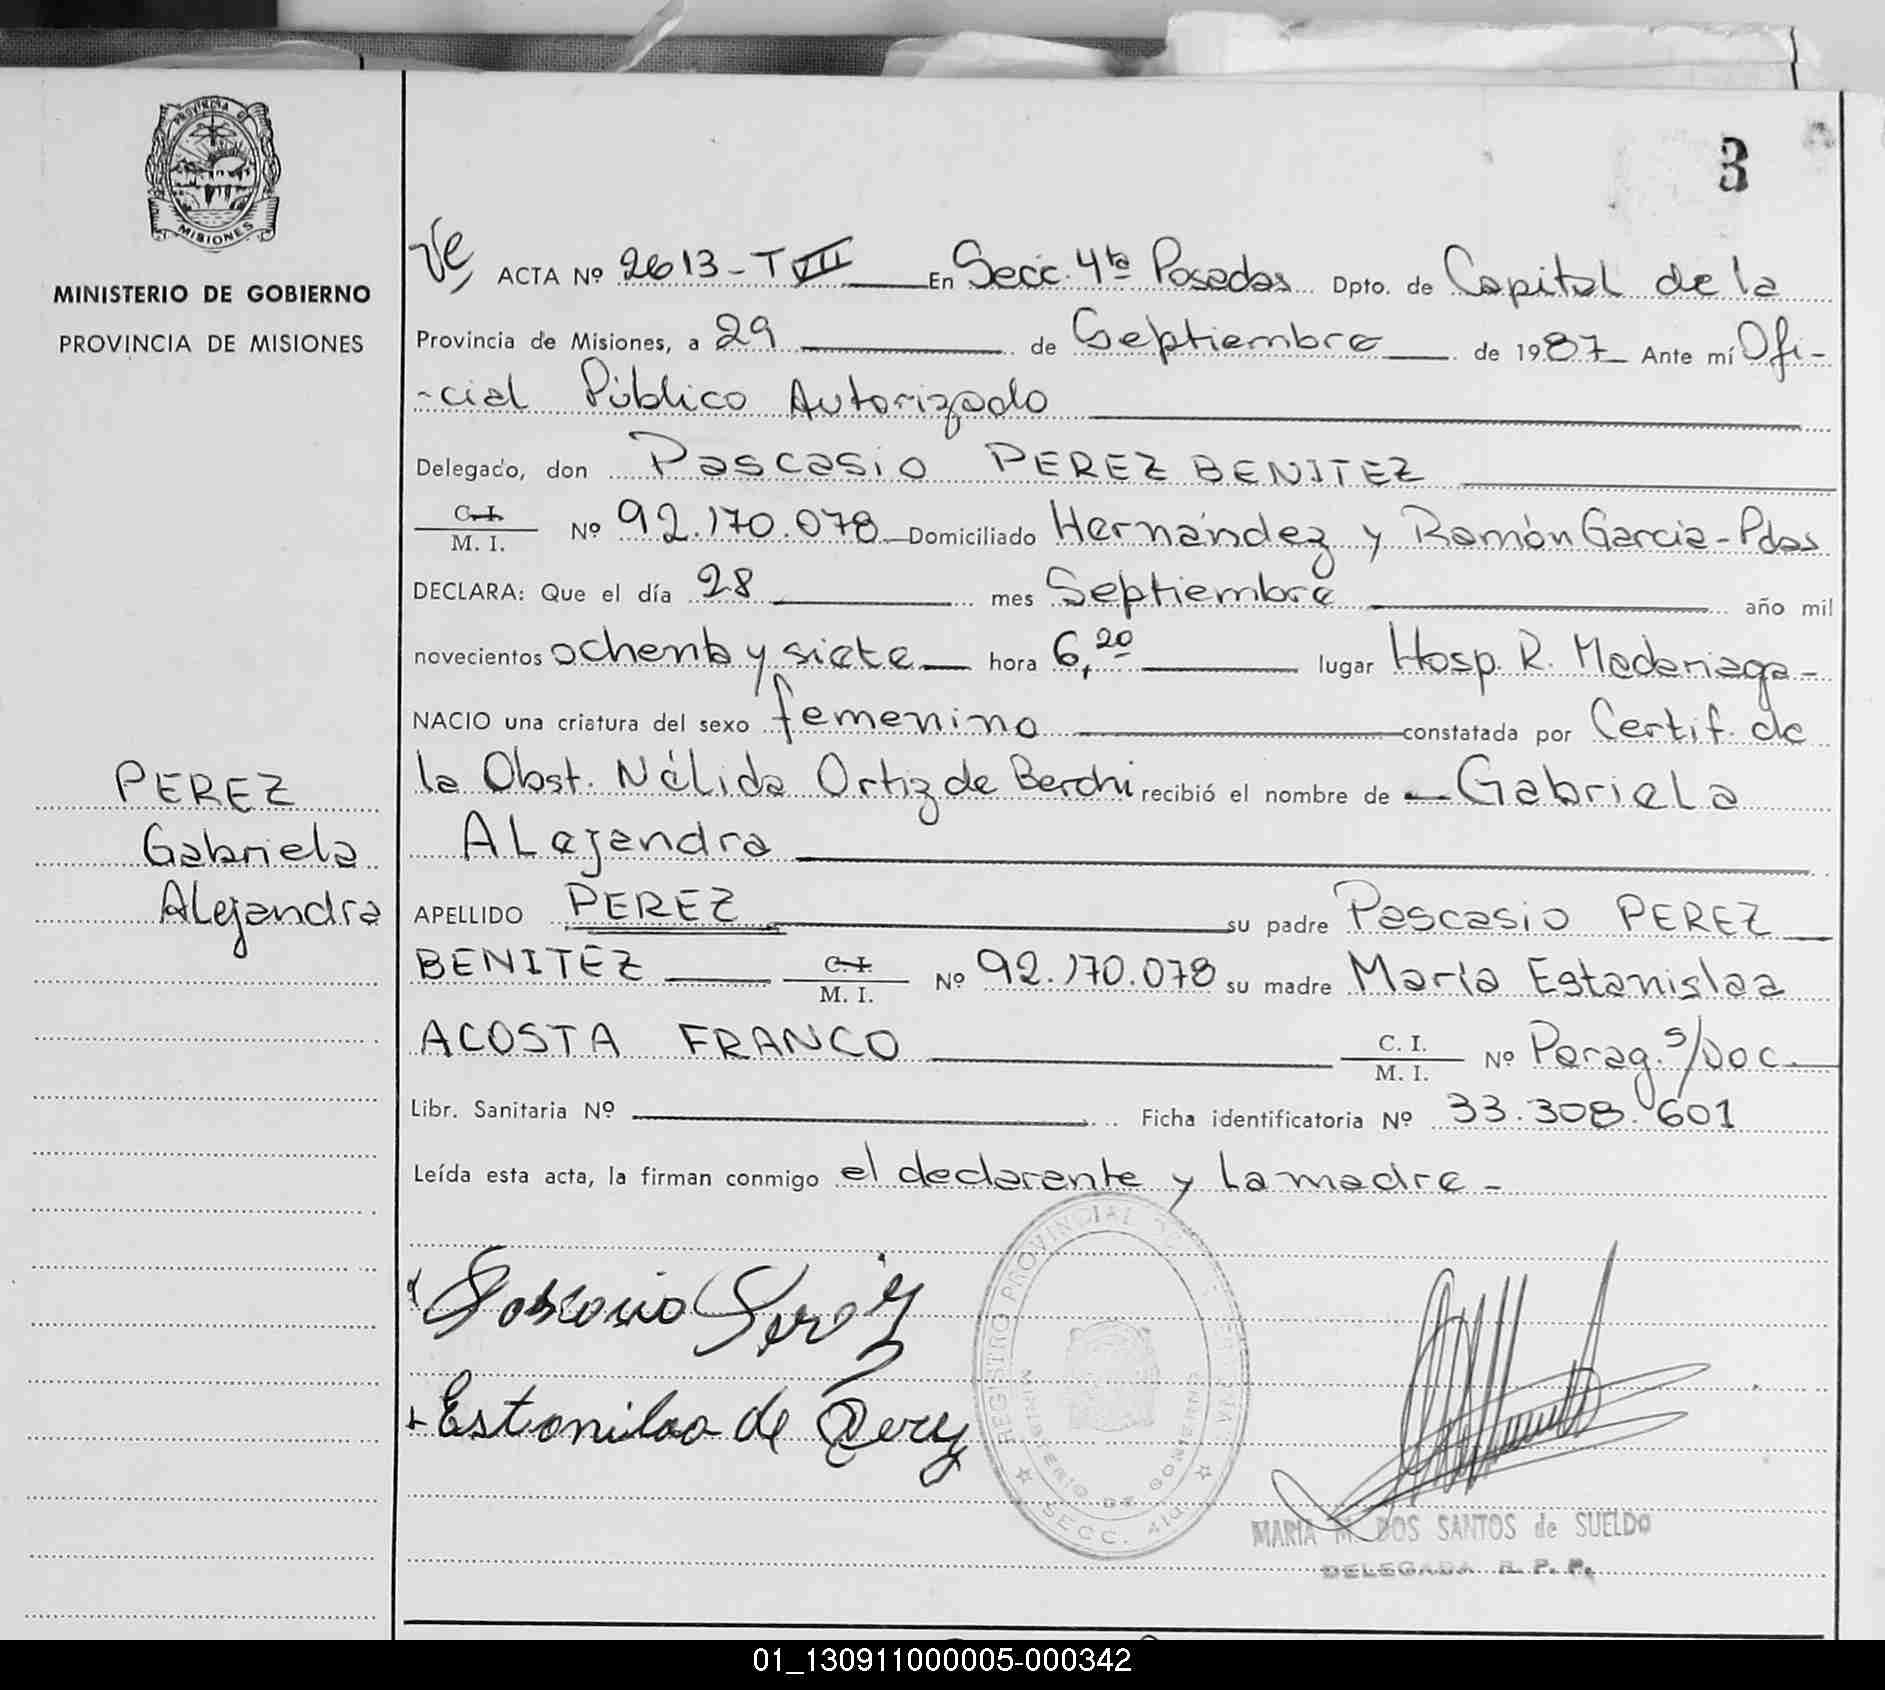 PROVINCIA DE
MISIONES
MINISTERIO DE GOBIERNO
PROVINCIA DE MISIONES
PEREZ
Gabriela
Alejandra
3
ACTA Nº 2613 - T VII En Secc. 4ta Posadas Dpto. de Capital de la
Provincia de Misiones, a 29 de Septiembre de 1987 Ante mí Ofi-
-cial Público Autorizado
Delegado, don Pascasio PEREZ BENITEZ
C. I.
M. I. Nº 92.170.078 Domiciliado Hernández y Ramón García - Pdas
DECLARA: Que el día 28 mes Septiembre año mil
novecientos ochenta y siete hora 6,20 lugar Hosp. R. Madariaga -
NACIO una criatura del sexo femenino constatada por Certif. de
la Obst. Nélida Ortiz de Berchi recibió el nombre de Gabriela
ALejandra
APELLIDO PEREZ su padre Pascasio PEREZ
BENITEZ C. I.
M. I. Nº 92.170.078 su madre María Estanislaa
ACOSTA FRANCO C. I.
M. I. Nº Parag. s/Doc.
Libr. Sanitaria Nº Ficha identificatoria Nº 33.308.601
Leída esta acta, la firman conmigo el declarante y la madre -
Pascasio Perez
Estanilaa de Perez
REGISTRO PROVINCIAL DE PERSONAS
MINISTERIO DE GOBIERNO
SECC. 4ta
MARIA M. DOS SANTOS de SUELDO
DELEGADA R. P. P.
01_130911000005-000342